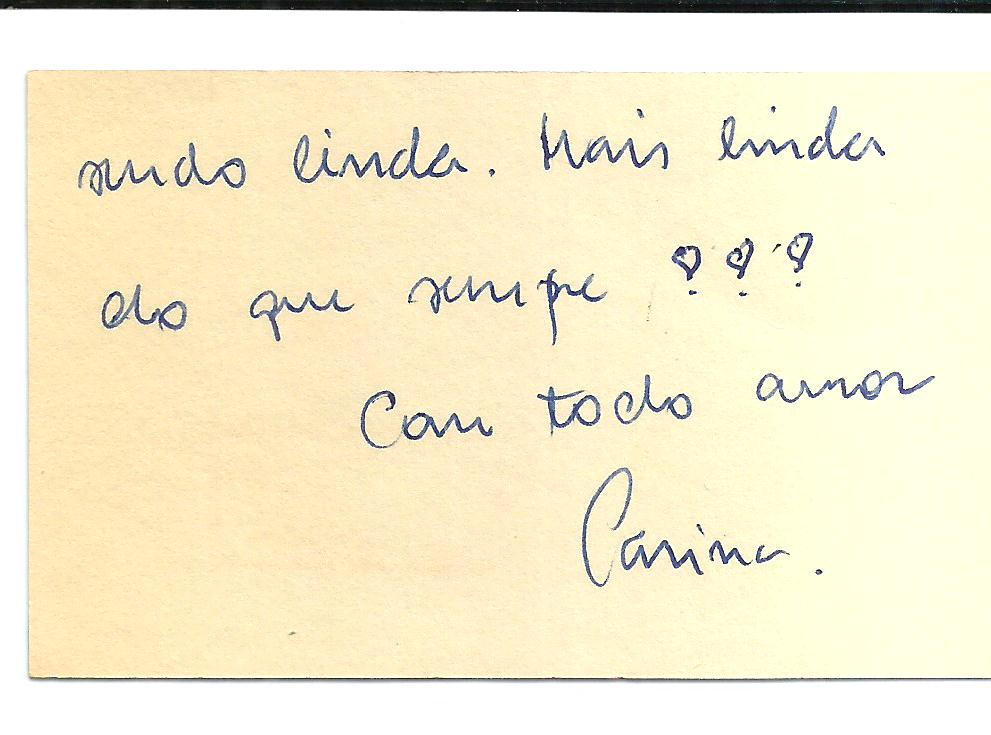 sendo linda. Mais linda
do que sempre !!!
Com todo amor
Carina.